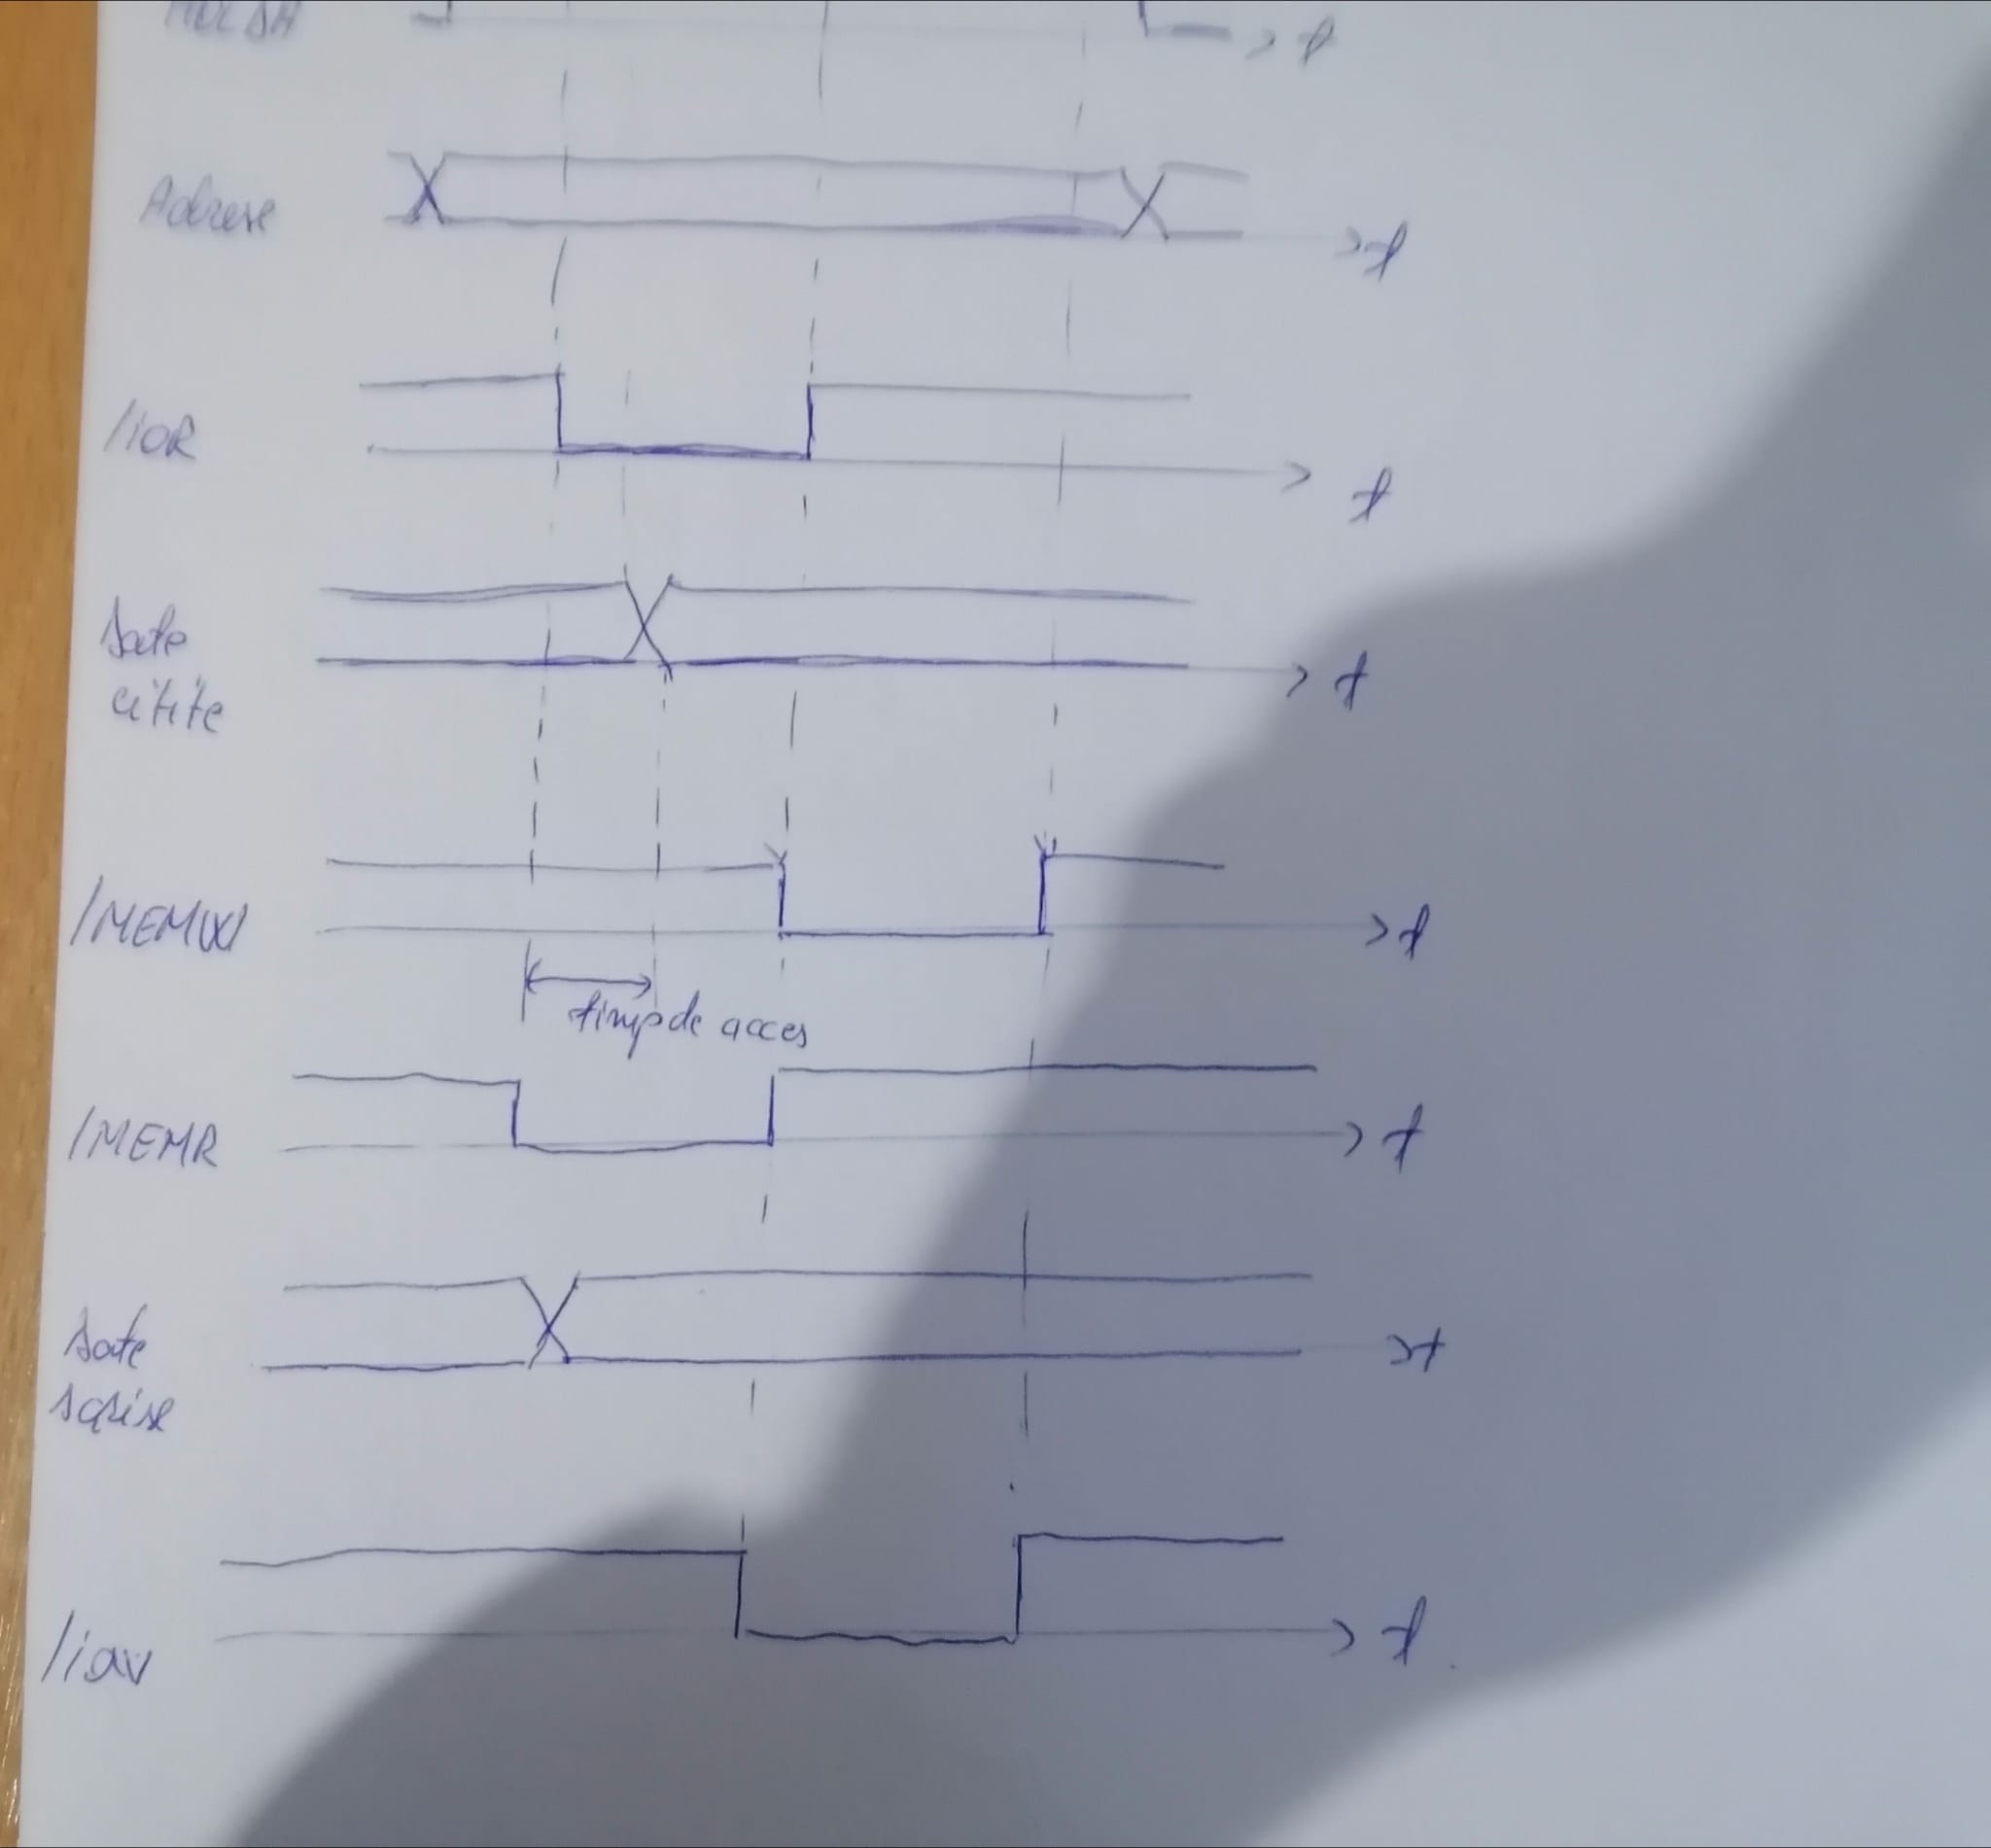 t
Adrese
t
/IOR
t
Date
citite
t
/MEMW
t
timp de acces
/MEMR
t
Date
scrise
t
/iow
t